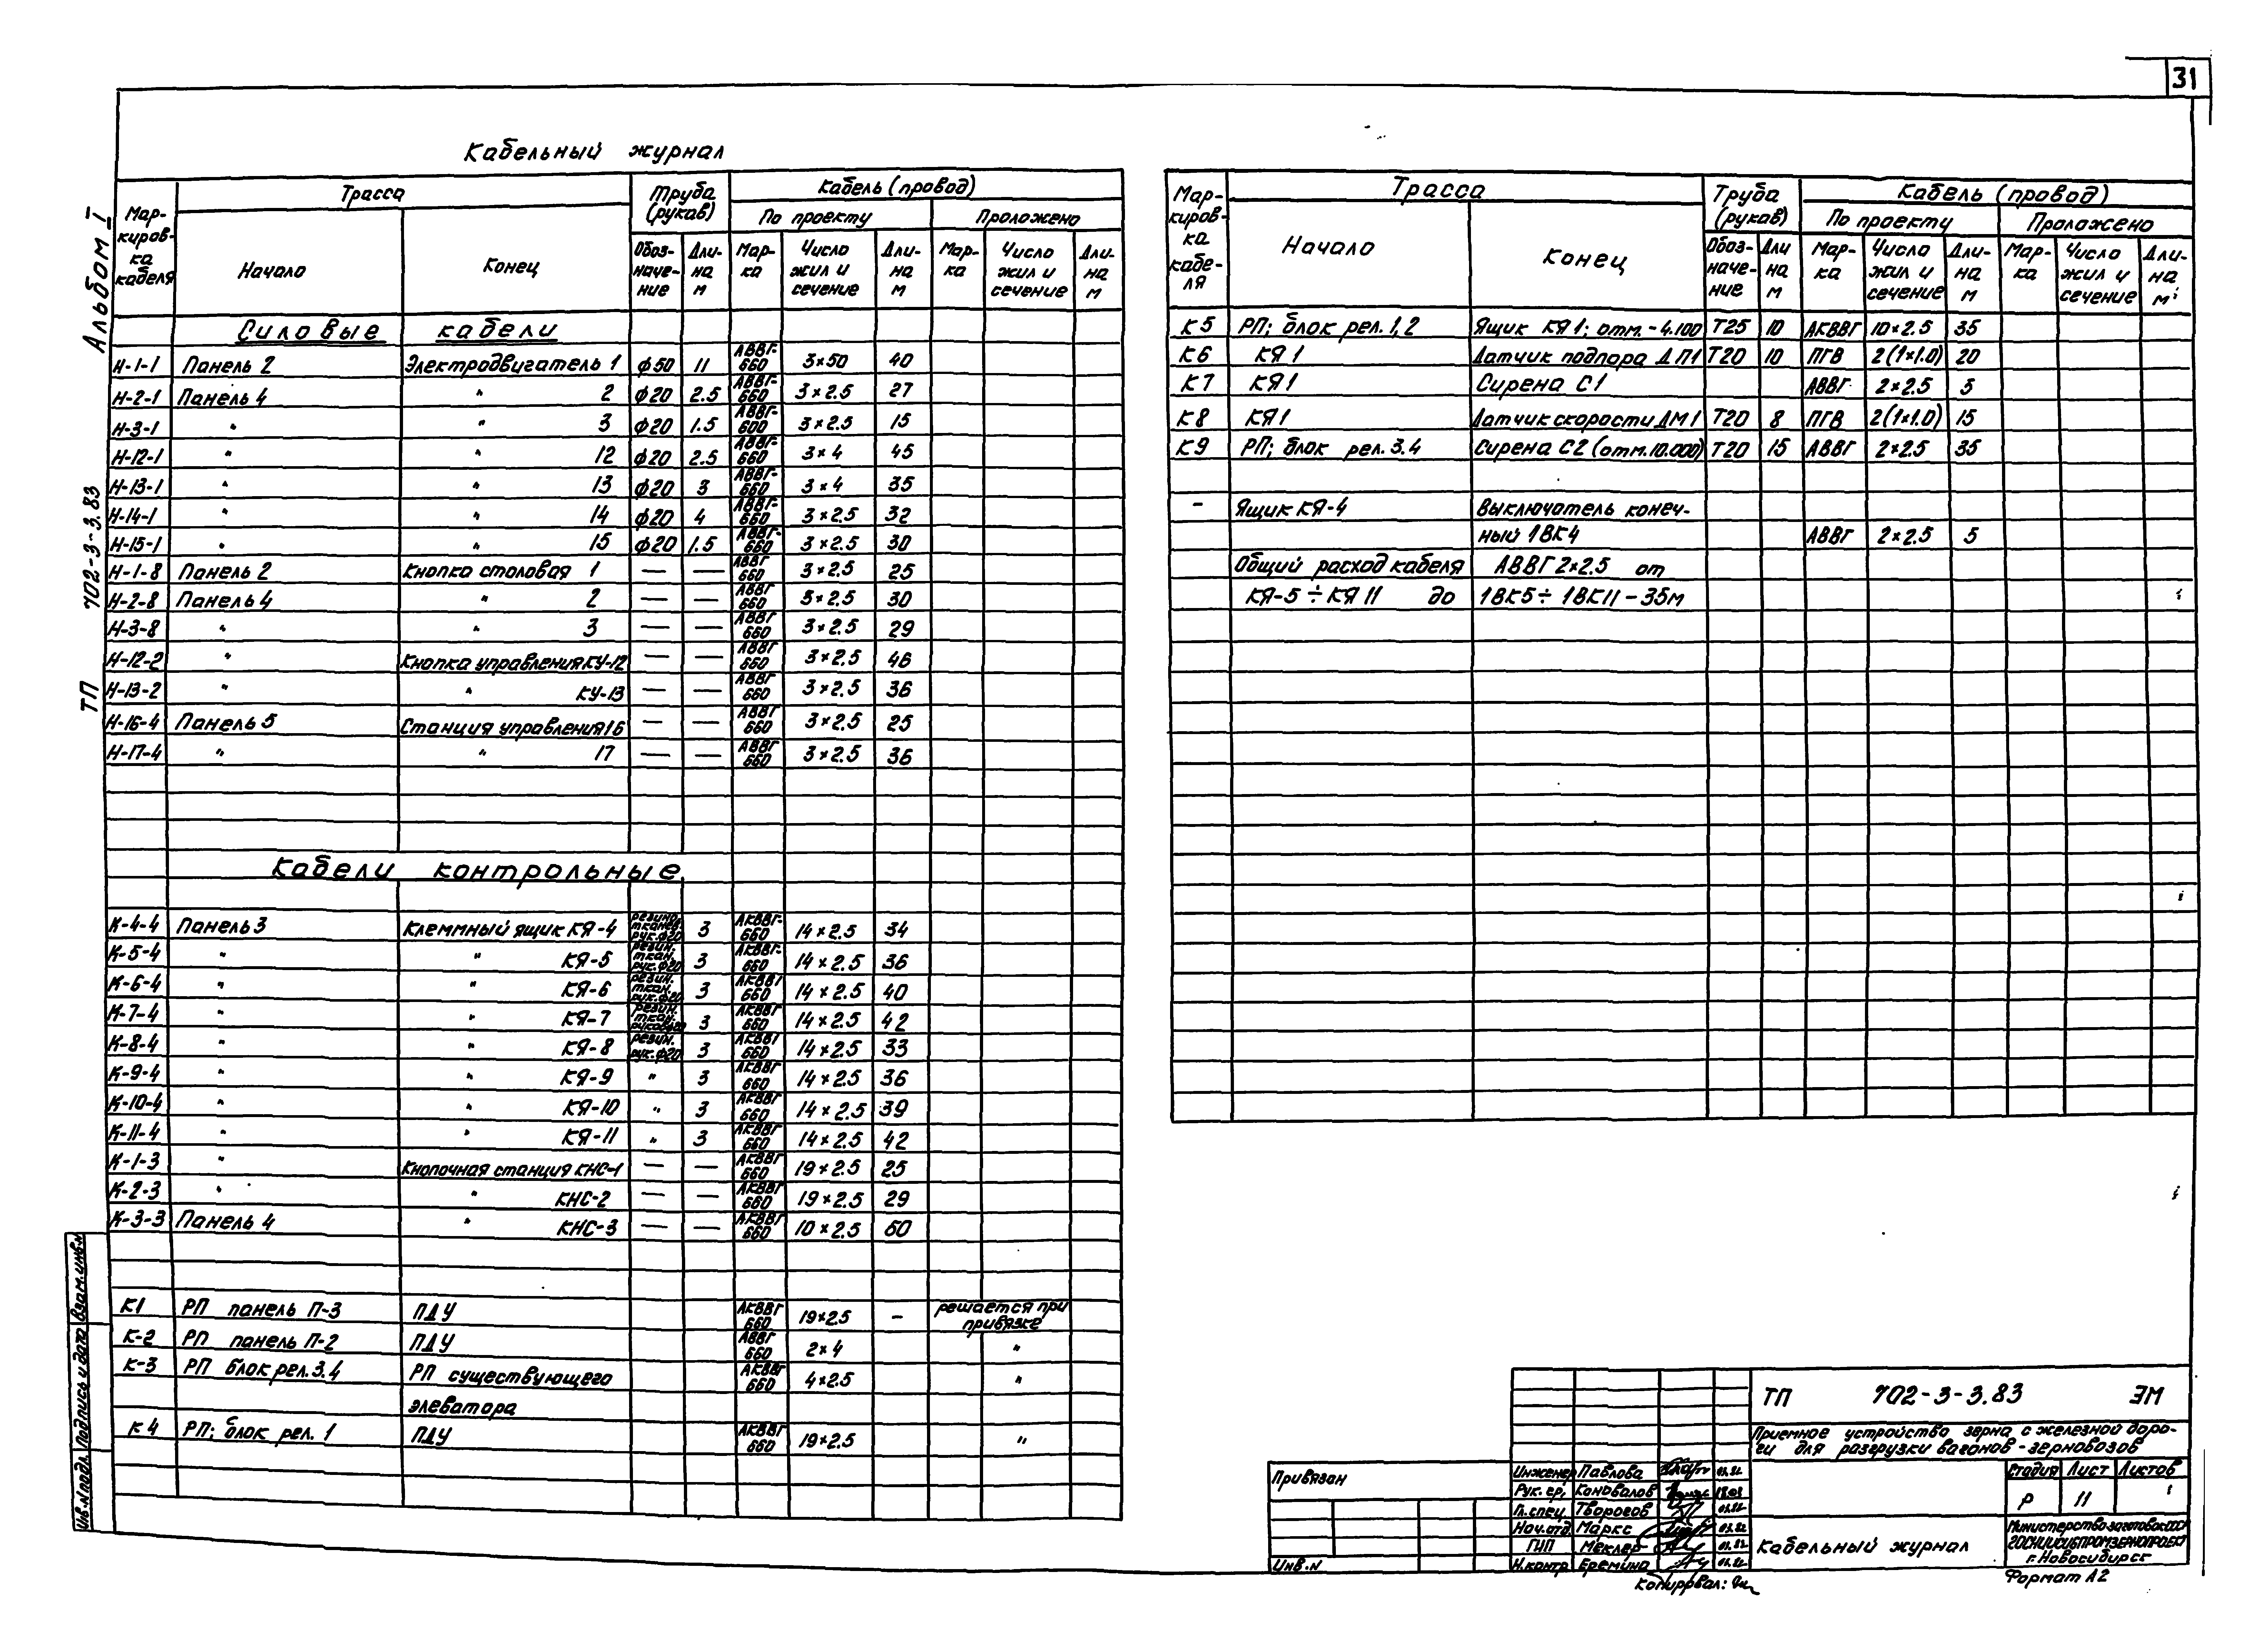 31
Альбом I
ТП 702-3-3.83
Кабельный журнал
Мар-кировка кабеля | Трасса | Труба (рукав) | Кабель (провод)
По проекту | Проложено
Начало | Конец | Обоз-наче-ние | Дли-на м | Мар-ка | Число жил и сечение | Дли-на м | Мар-ка | Число жил и сечение | Дли-на м
Силовые кабели
Н-1-1 Панель 2 Электродвигатель 1 ф50 11 АВВГ-660 3×50 40
Н-2-1 Панель 4 " 2 ф20 2.5 АВВГ-660 3×2.5 27
Н-3-1 " " 3 ф20 1.5 АВВГ-600 3×2.5 15
Н-12-1 " " 12 ф20 2.5 АВВГ-660 3×4 45
Н-13-1 " " 13 ф20 3 АВВГ-660 3×4 35
Н-14-1 " " 14 ф20 4 АВВГ-660 3×2.5 32
Н-15-1 " " 15 ф20 1.5 АВВГ-660 3×2.5 30
Н-1-8 Панель 2 Кнопка столовая 1 — — АВВГ 660 3×2.5 25
Н-2-8 Панель 4 " 2 — — АВВГ 660 3×2.5 30
Н-3-8 " " 3 — — АВВГ 660 3×2.5 29
Н-12-2 " Кнопка управления КУ-12 — — АВВГ 660 3×2.5 46
Н-13-2 " " КУ-13 — — АВВГ 660 3×2.5 36
Н-16-4 Панель 5 Станция управления 16 — — АВВГ 660 3×2.5 25
Н-17-4 " " 17 — — АВВГ 660 3×2.5 36
Кабели контрольные.
К-4-4 Панель 3 Клеммный ящик КЯ-4 резино тканев. рук.ф20 3 АКВВГ-660 14×2.5 34
К-5-4 " " КЯ-5 резин. ткан. рук.ф20 3 АКВВГ-660 14×2.5 36
К-6-4 " " КЯ-6 резин. ткан. рук.ф20 3 АКВВГ 660 14×2.5 40
К-7-4 " " КЯ-7 резин. ткан. 3 АКВВГ 660 14×2.5 42
К-8-4 " " КЯ-8 резин. рук.ф20 3 АКВВГ 660 14×2.5 33
К-9-4 " " КЯ-9 " 3 АКВВГ 660 14×2.5 36
К-10-4 " " КЯ-10 " 3 АКВВГ 660 14×2.5 39
К-11-4 " " КЯ-11 " 3 АКВВГ 660 14×2.5 42
К-1-3 " Кнопочная станция КНС-1 — — АКВВГ 660 19×2.5 25
К-2-3 " " КНС-2 — — АКВВГ 660 19×2.5 29
К-3-3 Панель 4 " КНС-3 — — АКВВГ 660 10×2.5 60
К1 РП панель П-3 ПДУ АКВВГ 660 19×2.5 – решается при привязке
К-2 РП панель П-2 ПДУ АВВГ 660 2×4 "
К-3 РП блок рел.3.4 РП существующего АКВВГ 660 4×2.5 "
элеватора
К4 РП; блок рел. 1 ПДУ АКВВГ 660 19×2.5 "
Мар-киров-ка кабе-ля | Трасса | Труба (рукав) | Кабель (провод)
По проекту | Проложено
Начало | Конец | Обоз-наче-ние | Дли на м | Мар-ка | Число жил и сечение | Дли-на м | Мар-ка | Число жил и сечение | Дли-на м
К5 РП; блок рел. 1,2 Ящик КЯ1; отм. -4.100 Т25 10 АКВВГ 10×2.5 35
К6 КЯ1 Датчик подпора ДП1 Т20 10 ПГВ 2(1×1.0) 20
К7 КЯ1 Сирена С1 АВВГ 2×2.5 5
К8 КЯ1 Датчик скорости ДМ1 Т20 8 ПГВ 2(1×1.0) 15
К9 РП; блок рел. 3.4 Сирена С2 (отм.10.000) Т20 15 АВВГ 2×2.5 35
– Ящик КЯ-4 Выключатель конеч-
ный 1ВК4 АВВГ 2×2.5 5
Общий расход кабеля АВВГ 2×2.5 от
КЯ-5÷КЯ11 до 1ВК5÷1ВК11 – 35м
Инв.№подл. Подпись и дата Взам.инв.№
Привязан
Инв.№
Инженер Павлова 03.82
Рук. гр. Коновалов
Гл.спец. Творогов 03.82
Нач.отд. Маркс 03.82
ГИП Меклер 03.82
Н.контр Еремина 03.82
ТП 702-3-3.83 ЭМ
Приемное устройство зерна с железной доро-
ги для разгрузки вагонов-зерновозов
Стадия Лист Листов
Р 11
Кабельный журнал
Министерство заготовок СССР
ГОСНИИСИБПРОМЗЕРНОПРОЕКТ
г. Новосибирск
Копировал:
Формат А2